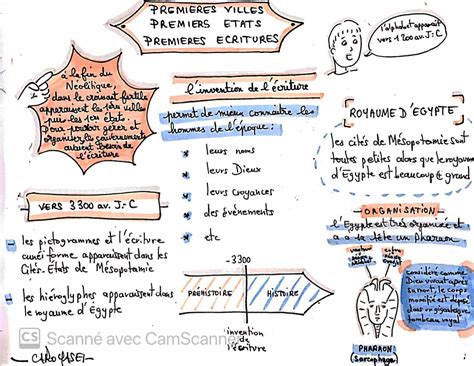 PREMIERES VILLES
PREMIERS ETATS
PREMIERES ECRITURES
l'alphabet apparaît
vers 1200 av. J-C
à la fin du
Néolithique,
dans le croissant fertile
apparaissent les 1ères villes
puis les 1ers états.
Pour pouvoir gérer et
organiser les gouvernements
avaient besoin de
l'écriture
l'invention de l'écriture
permet de mieux connaître les
hommes de l'époque :
* leurs noms
* leurs Dieux
* leurs croyances
* des événements
* etc
ROYAUME D'EGYPTE
les cités de Mésopotamie sont
toutes petites alors que le royaume
d'Egypte est beaucoup + grand
VERS 3300 av. J-C
les pictogrammes et l'écriture
cunéiforme apparaissent dans les
Cités-Etats de Mésopotamie
les hiéroglyphes apparaissent dans
le royaume d'Egypte
-3300
PRÉHISTOIRE
HISTOIRE
invention
de
l'écriture
ORGANISATION
l'Egypte est très organisée et
a à sa tête un Pharaon
Considéré comme
Dieu vivant après
sa mort, le corps
momifié est déposé
dans un gigantesque
tombeau royal
PHARAON
(sarcophage)
CS Scanné avec CamScanner